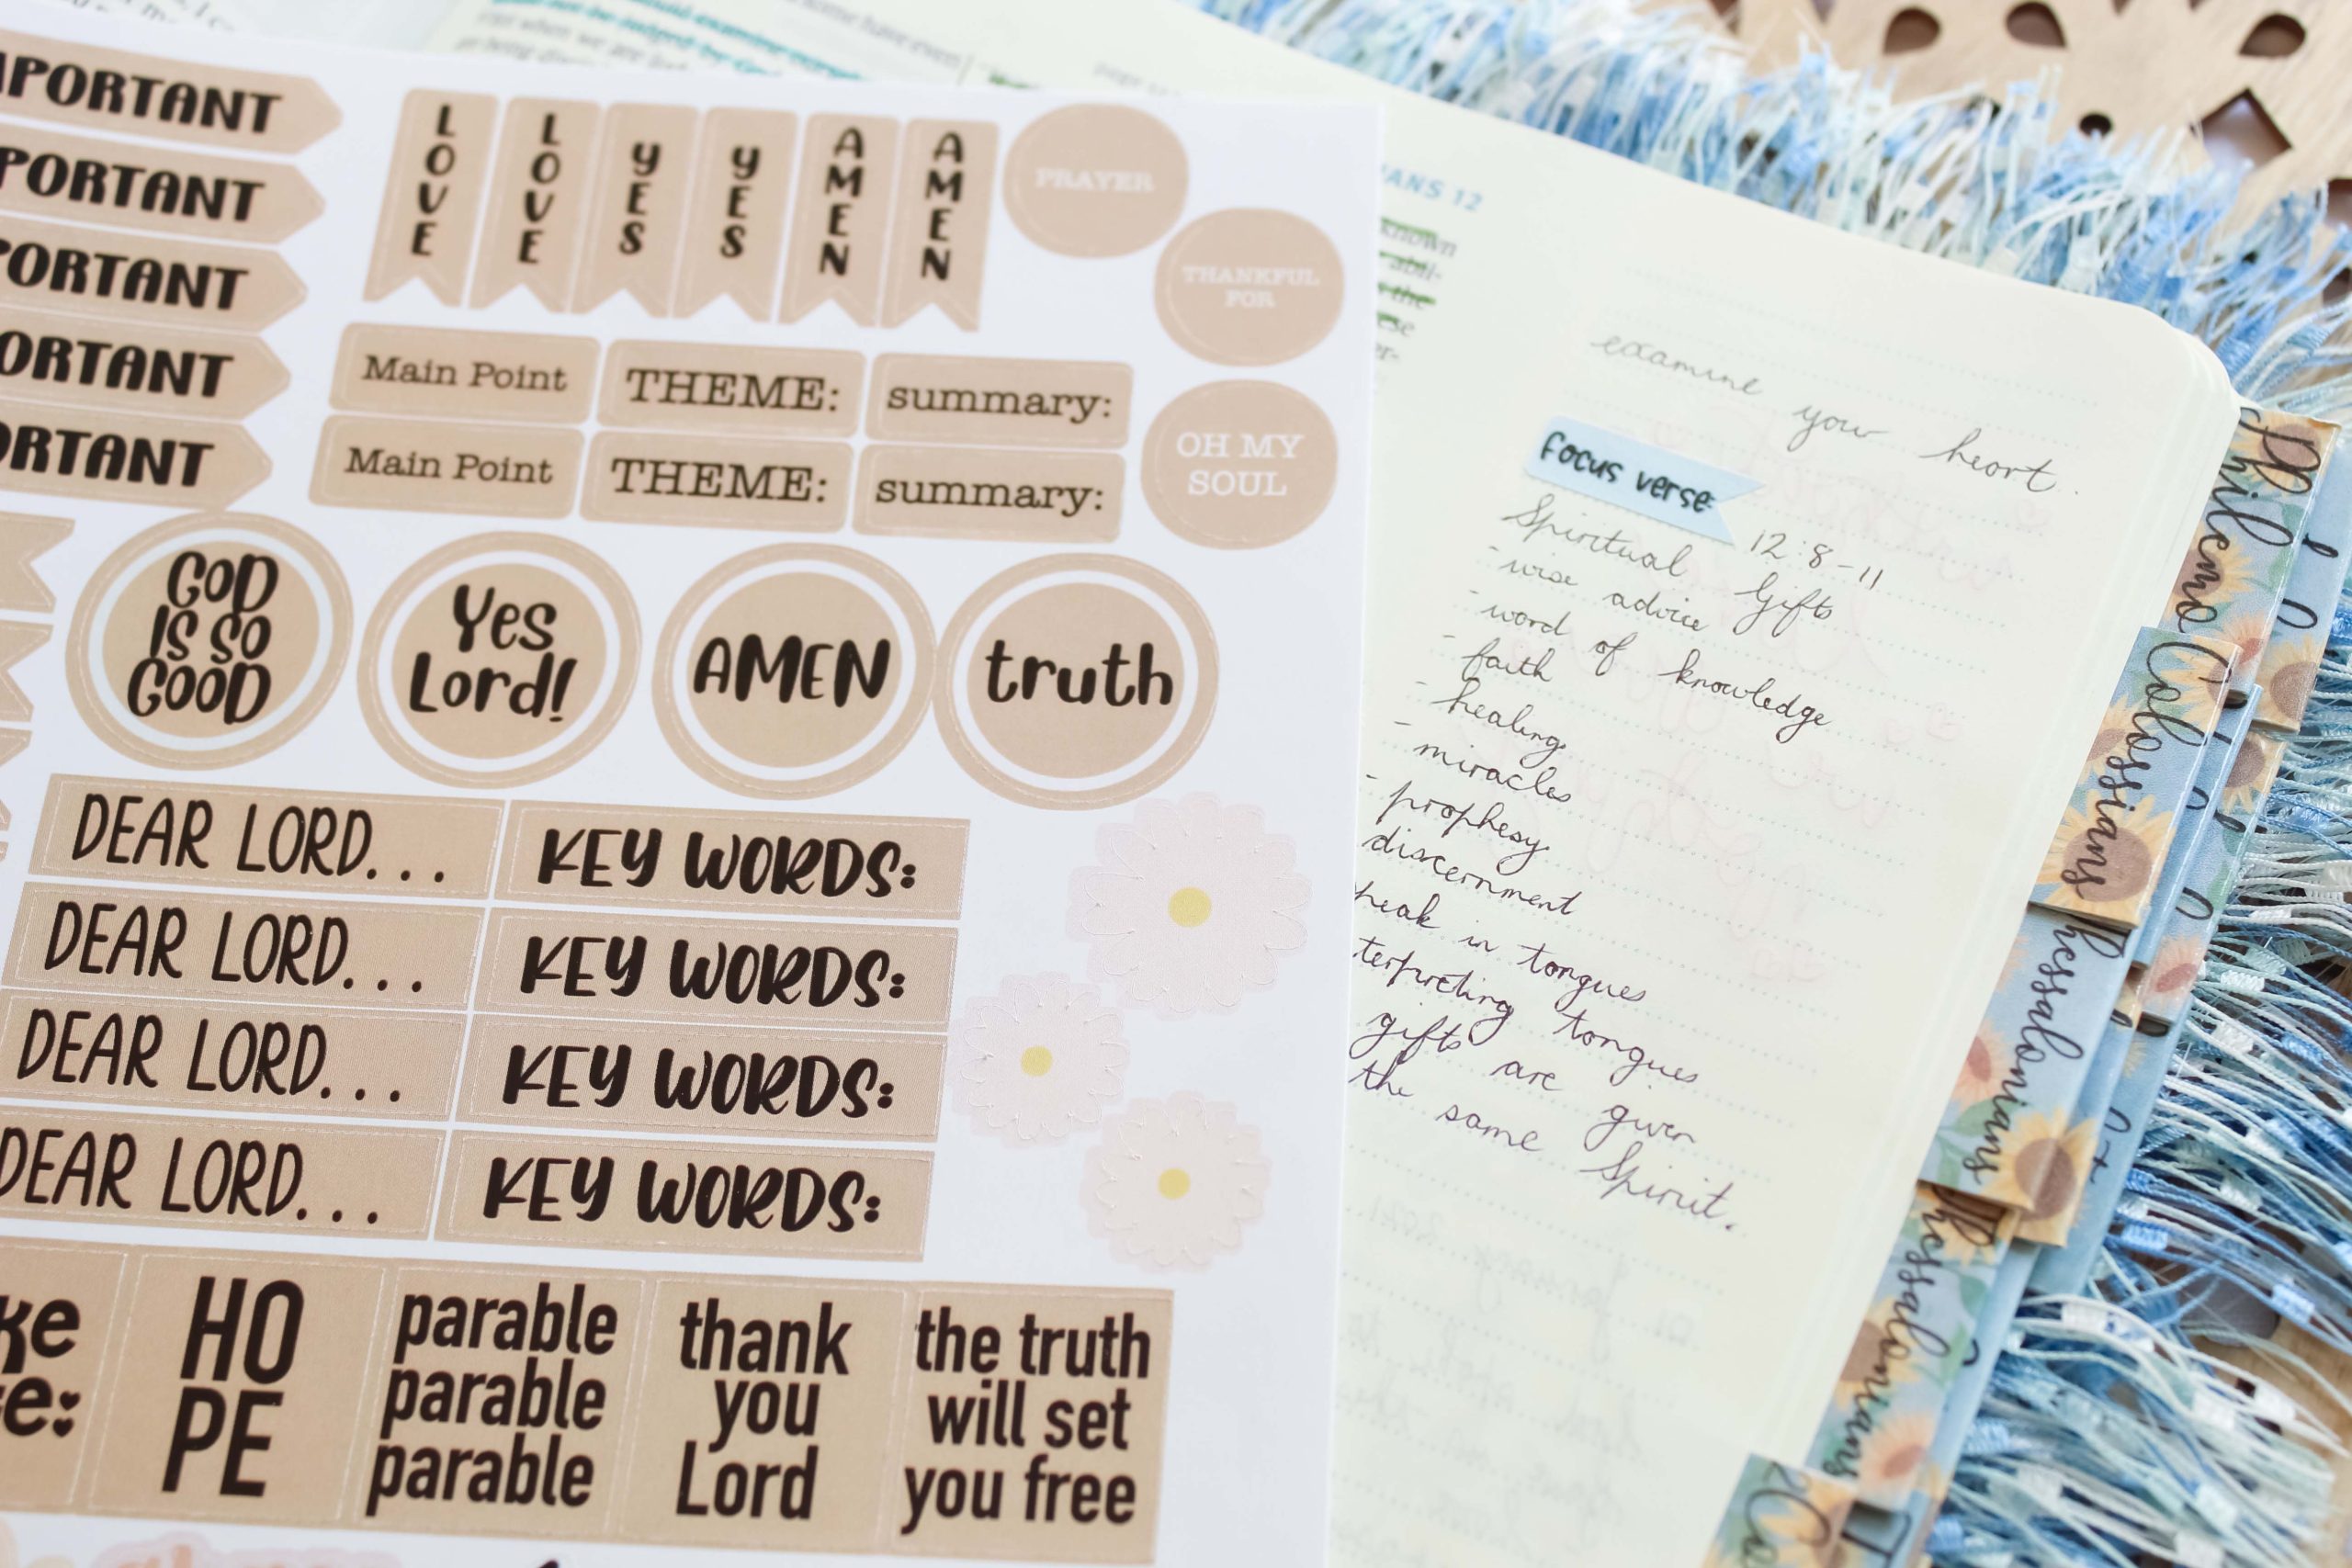 PORTANT
PORTANT
PORTANT
ORTANT
ORTANT
LOVE
LOVE
yES
yES
AMEN
AMEN
PRAYER
THANKFUL
FOR
OH MY
SOUL
Main Point
THEME:
summary:
Main Point
THEME:
summary:
GOD
IS SO
GOOD
Yes
Lord!
AMEN
truth
DEAR LORD...
KEY WORDS:
DEAR LORD...
KEY WORDS:
DEAR LORD...
KEY WORDS:
DEAR LORD...
KEY WORDS:
ke
e:
HO
PE
parable
parable
parable
thank
you
Lord
the truth
will set
you free
ANS 12
known
abli-
the
ese
er-
examine your heart.
focus verse:
12:8-11
Spiritual Gifts
- wise advice
- word of knowledge
- faith
- healing
- miracles
- prophesy
discernment
peak in tongues
terpreting tongues
gifts are given
the same Spirit.
Philemo
Colossians
hessalonians
Thessalonians